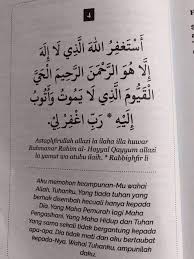 4
أَسْتَغْفِرُ اللهَ الَّذِي لَا إِلٰهَ
إِلَّا هُوَ الرَّحْمٰنَ الرَّحِيمَ الْحَيَّ
الْقَيُّومَ الَّذِي لَا يَمُوتُ وَأَتُوبُ
إِلَيْهِ * رَبِّ اغْفِرْ لِي
Astaghfirullah allazi la ilaha illa huwar
Rahmanar Rahim al- Hayyal Qayyum allazi
la yamut wa atubu ilaih. * Rabbighfir li
Aku memohon keampunan-Mu wahai
Allah, Tuhanku. Yang tiada tuhan yang
berhak disembah kecuali hanya kepada
Dia. Yang Maha Pemurah lagi Maha
Pengasihani. Yang Maha Hidup dan Tuhan
Yang sama sekali tidak bergantung kepada
apa-apa. Dia tidak mati dan aku bertaubat
kepada-Nya. Wahai Tuhanku, ampunilah
daku.